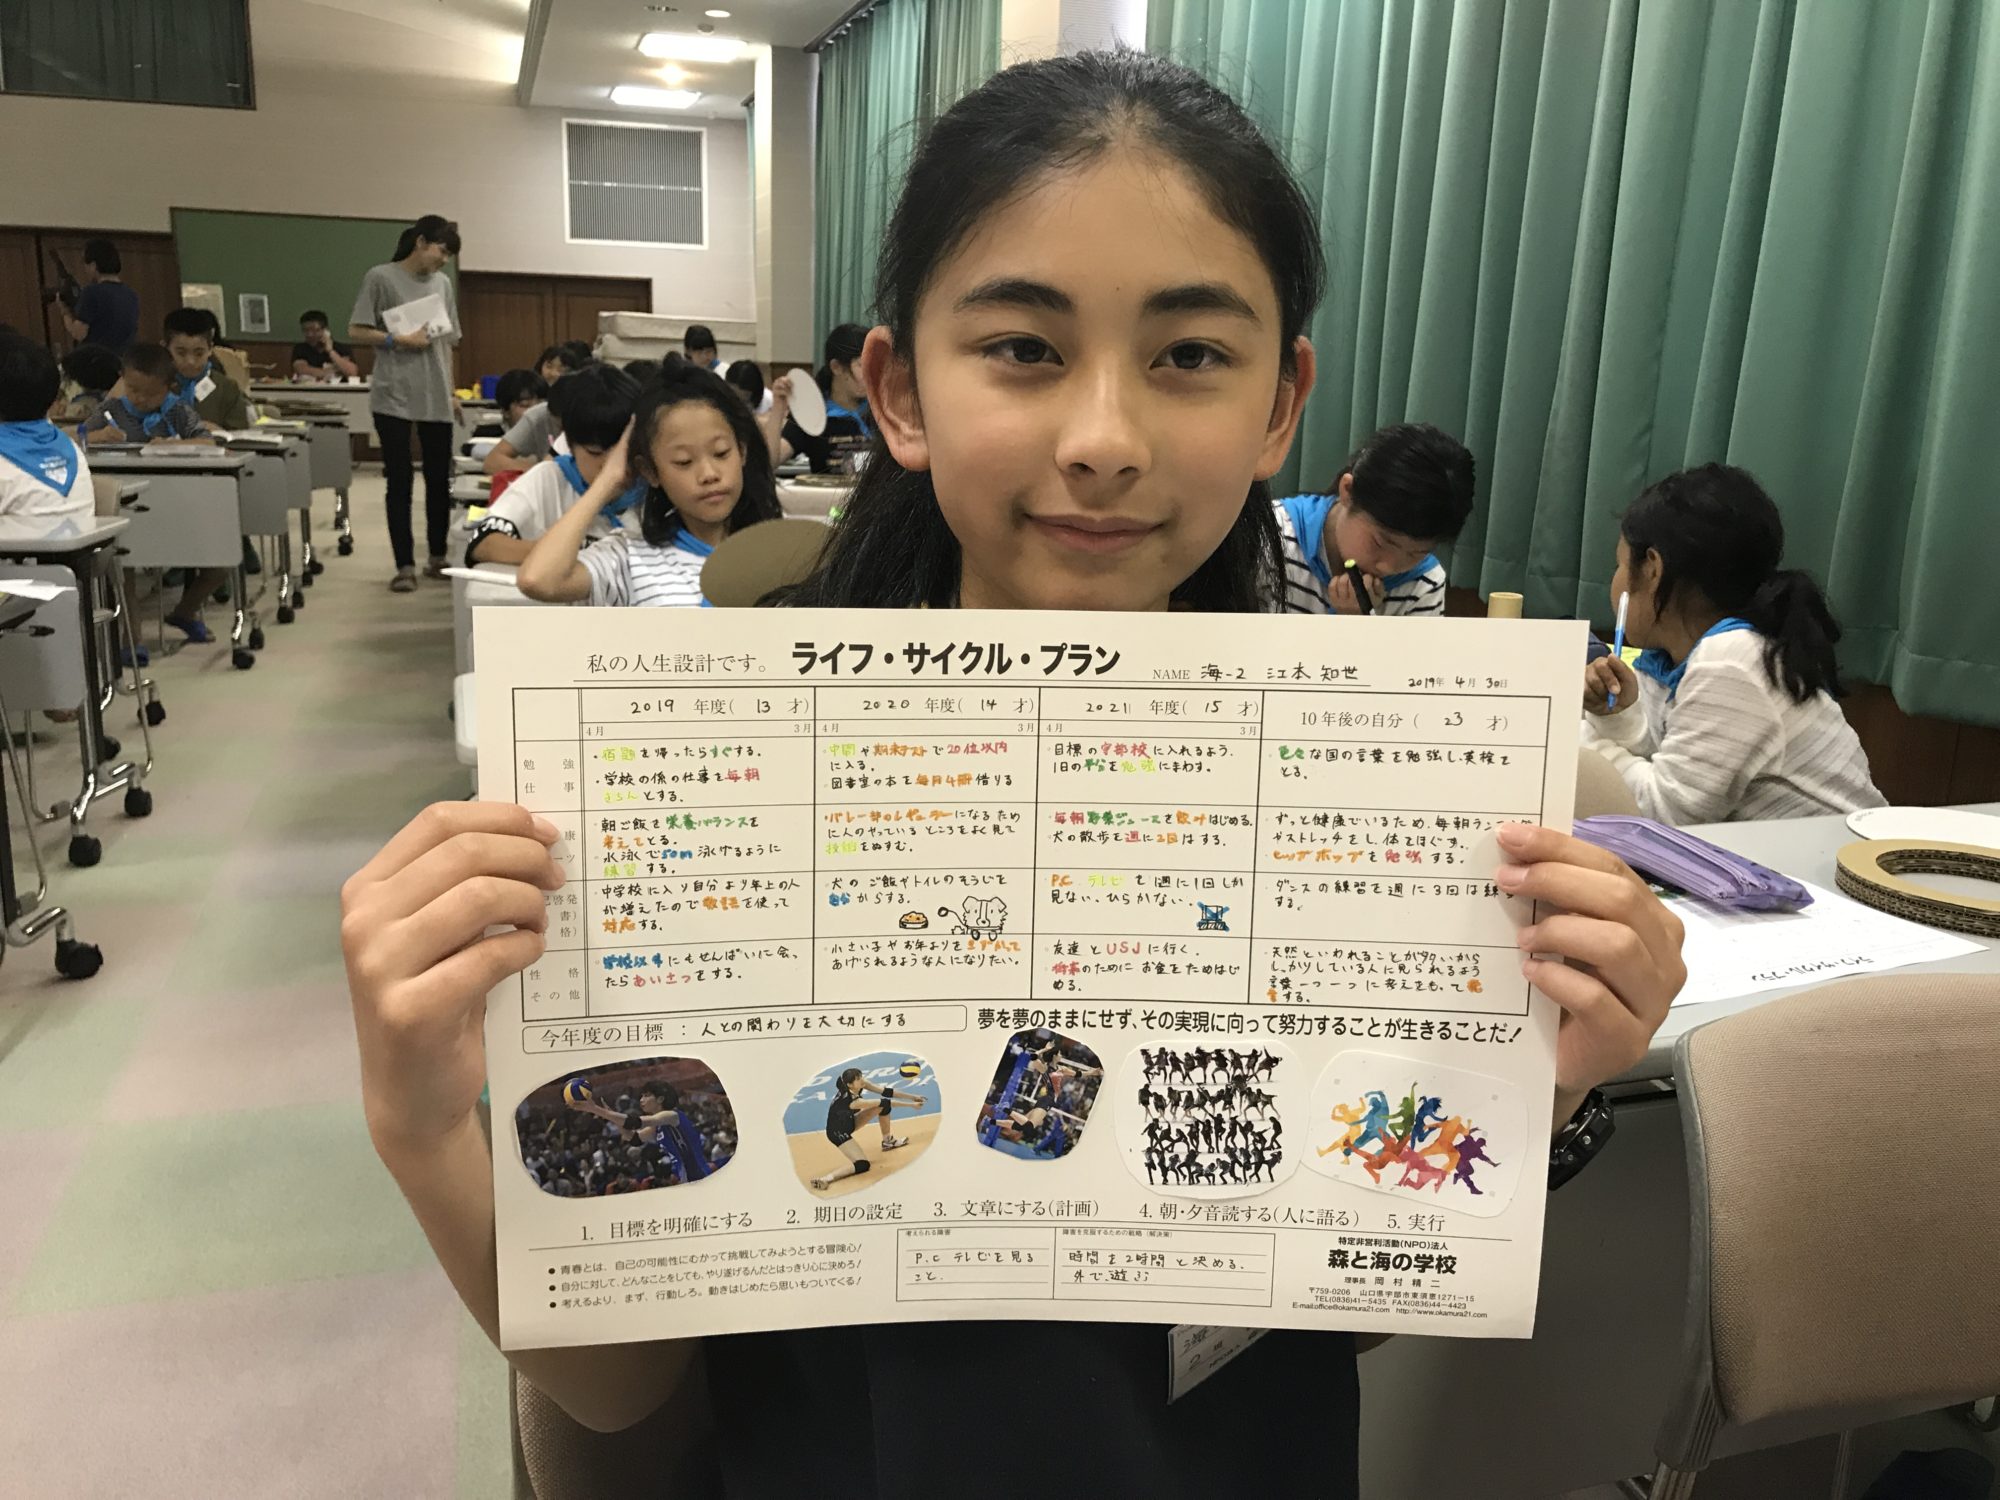 私の人生設計です。 ライフ・サイクル・プラン NAME 海-2 江本 知世 2019年 4月 30日
2019 年度( 13 才) 2020 年度( 14 才) 2021 年度( 15 才) 10年後の自分( 23 才)
4月 3月 4月 3月 4月 3月
勉強
仕事
・宿題を帰ったらすぐする。
・学校の係の仕事を毎朝
きちんとする。
・中間や期末テストで20位以内
に入る。
・図書室の本を毎月4冊借りる
・目標の宇部校に入れるよう、
1日の半分を勉強にまわす。
・色々な国の言葉を勉強し、英検を
とる。
康
ーツ
・朝ご飯を栄養バランスを
考えてとる。
・水泳で50m泳げるように
練習する。
・バレー部のレギュラーになるため
に人のやっているところをよく見て
技術をぬすむ。
・毎朝野菜ジュースを飲みはじめる。
・犬の散歩を週に2回はする。
・ずっと健康でいるため、毎朝ランニング
やストレッチをし、体をほぐす。
・ヒップホップを勉強する。
己啓発
書)
格)
・中学校に入り自分より年上の人
が増えたので敬語を使って
対応する。
・犬のご飯やトイレのそうじを
自分からする。
・P.C、テレビを週に1回しか
見ない、ひらかない。
・ダンスの練習を週に3回は練習
する。
性格
その他
・学校以外にもせんぱいに会っ
たらあいさつをする。
・小さい子やお年よりを
あげられるような人になりたい。
・友達とUSJに行く。
・将来のためにお金をためはじ
める。
・天然といわれることが多いから
しっかりしている人に見られるよう
言葉一つ一つに考えをもって発
言する。
今年度の目標 : 人との関わりを大切にする
夢を夢のままにせず、その実現に向って努力することが生きることだ!
1. 目標を明確にする 2. 期日の設定 3. 文章にする(計画) 4. 朝・夕音読する(人に語る) 5. 実行
● 青春とは、自己の可能性にむかって挑戦してみようとする冒険心!
● 自分に対して、どんなことをしても、やり遂げるんだとはっきり心に決めろ!
● 考えるより、まず、行動しろ。動きはじめたら思いもついてくる!
考えられる障害
P.C テレビを見る
こと。
障害を克服するための戦略(解決策)
時間を2時間と決める。
外で遊ぶ
特定非営利活動(NPO)法人
森と海の学校
理事長 岡村精二
〒759-0206 山口県宇部市東須恵1271-15
TEL(0836)41-5435 FAX(0836)44-4423
E-mail:office@okamura21.com http://www.okamura21.com
ライフ・サイクル・プラン